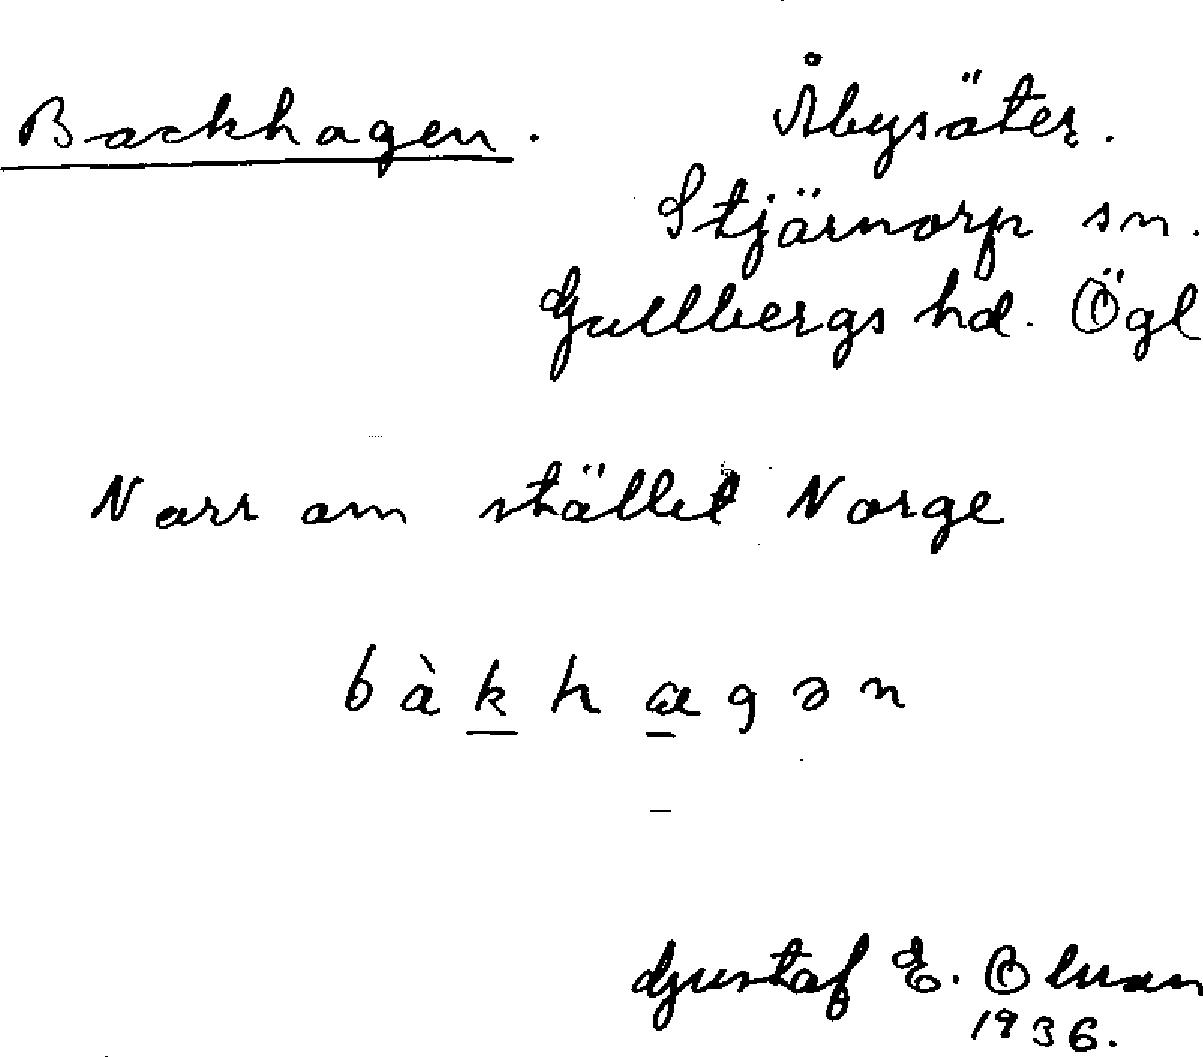 Backhagen. Åbysäter.
Stjärnorp sn.
Gullbergs hd. Ögl
Norr om stället Norge
bàkhagən
Gustaf E. Olsson
1936.